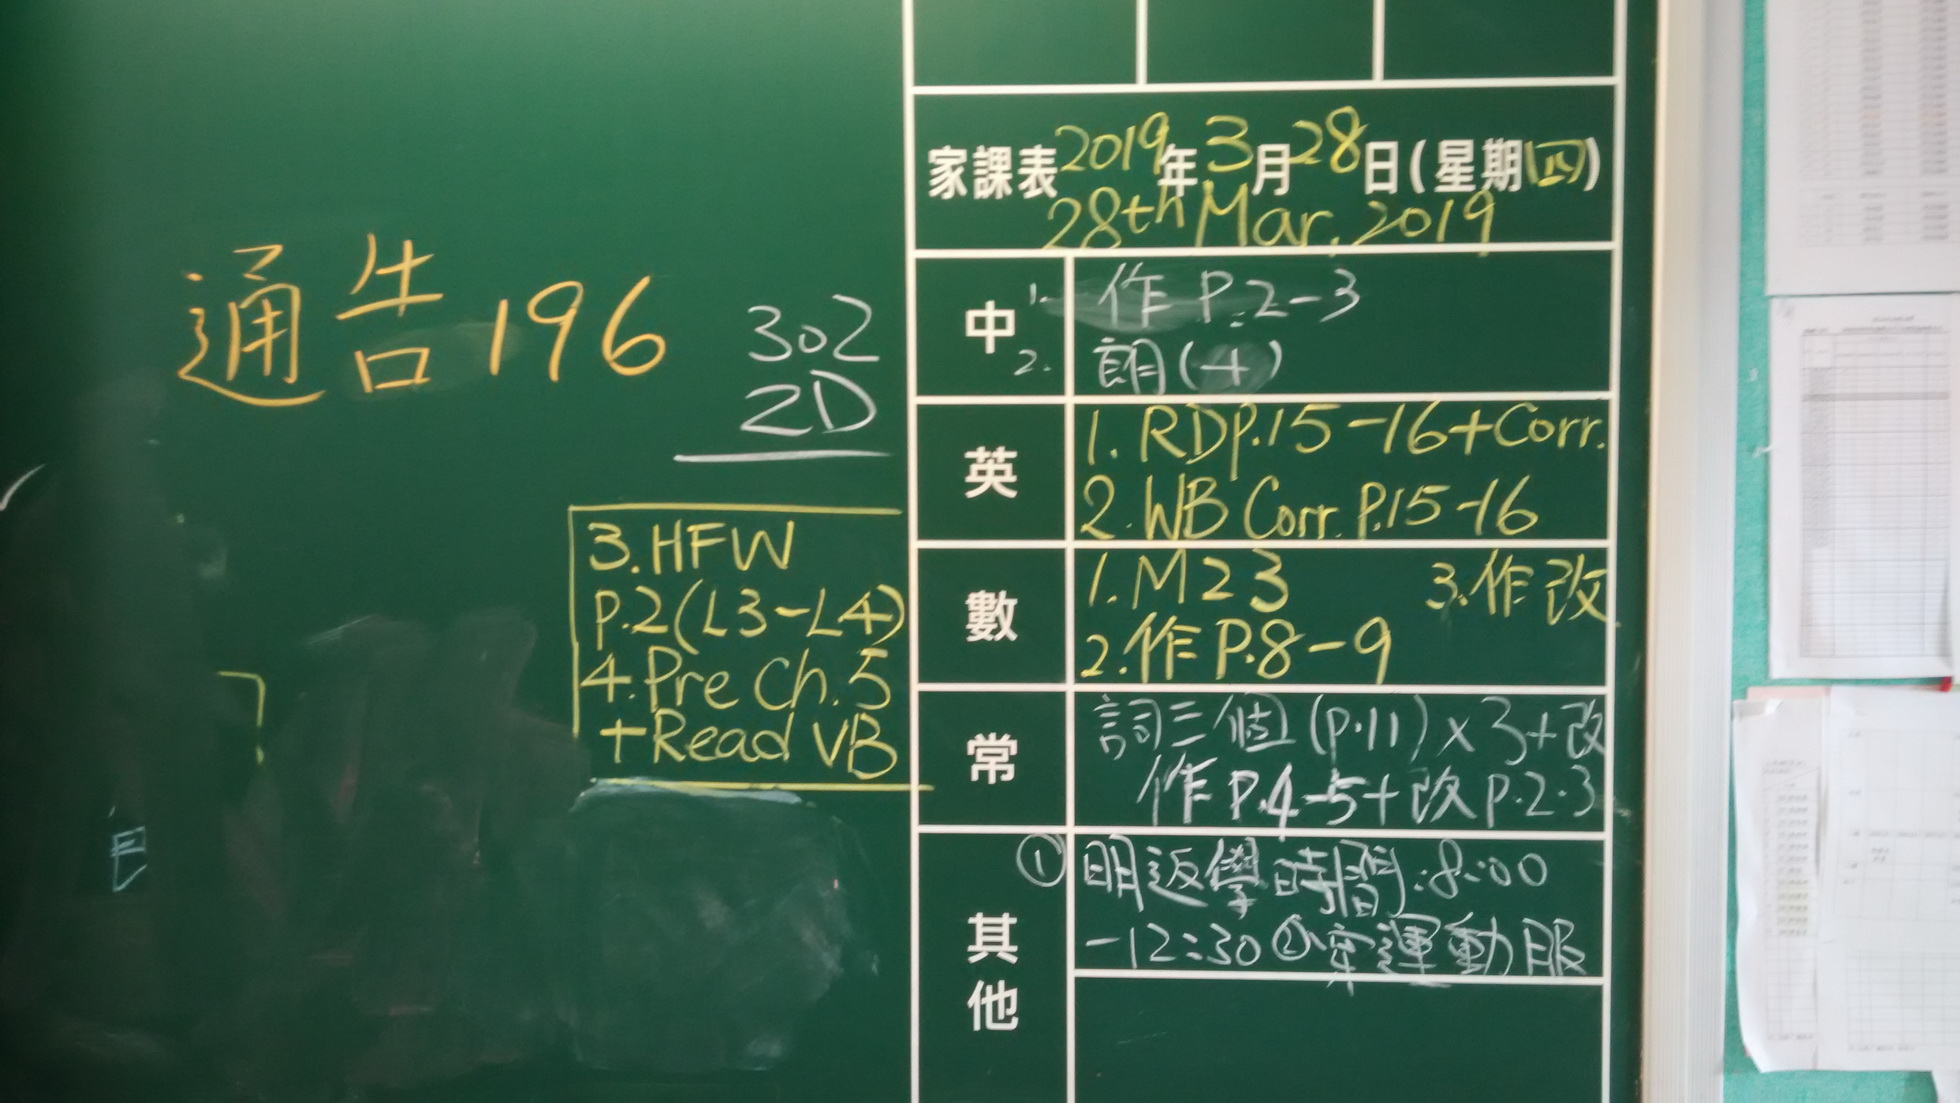 通告196
302
2D
3.HFW
P.2(L3-L4)
4.Pre Ch.5
+Read VB
家課表2019年3月28日(星期四)
28th Mar. 2019
中
1. 作 P.2-3
2. 朗(4)
英
1. RD P.15-16+Corr.
2. WB Corr. P.15-16
數
1. M23 3.作改
2.作 P.8-9
常
詞三個(P.11)x3+改
作 P.4-5+改 P.2-3
其他
① 明返學時間:8:00
-12:30 ②穿運動服